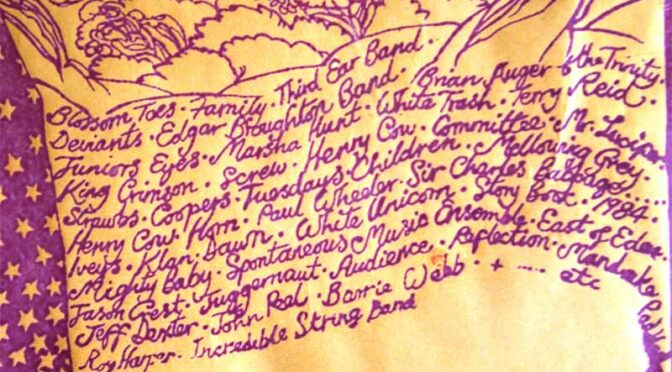 Blossom Toes · Family · Third Ear Band ·
Deviants · Edgar Broughton Band · Brian Auger & the Trinity
Juniors Eyes · Marsha Hunt · White Trash · Terry Reid ·
King Crimson · Screw · Henry Cow · Committee · Mr. Lucifer
Strawbs · Coopers · Tuesdays Children · Mellowing Grey ·
Henry Cow · Horn · Paul Wheeler · Sir Charles Babbage ....
Iveys · Klan · Dawn · White Unicorn · Story Book · 1984 ·
Mighty Baby · Spontaneous Music Ensemble · East of Eden ·
Jason Crest · Juggernaut · Audience · Reflection · Mandrake
Jeff Dexter · John Peel · Barrie Webb · + ..... etc
Roy Harper · Incredible String Band